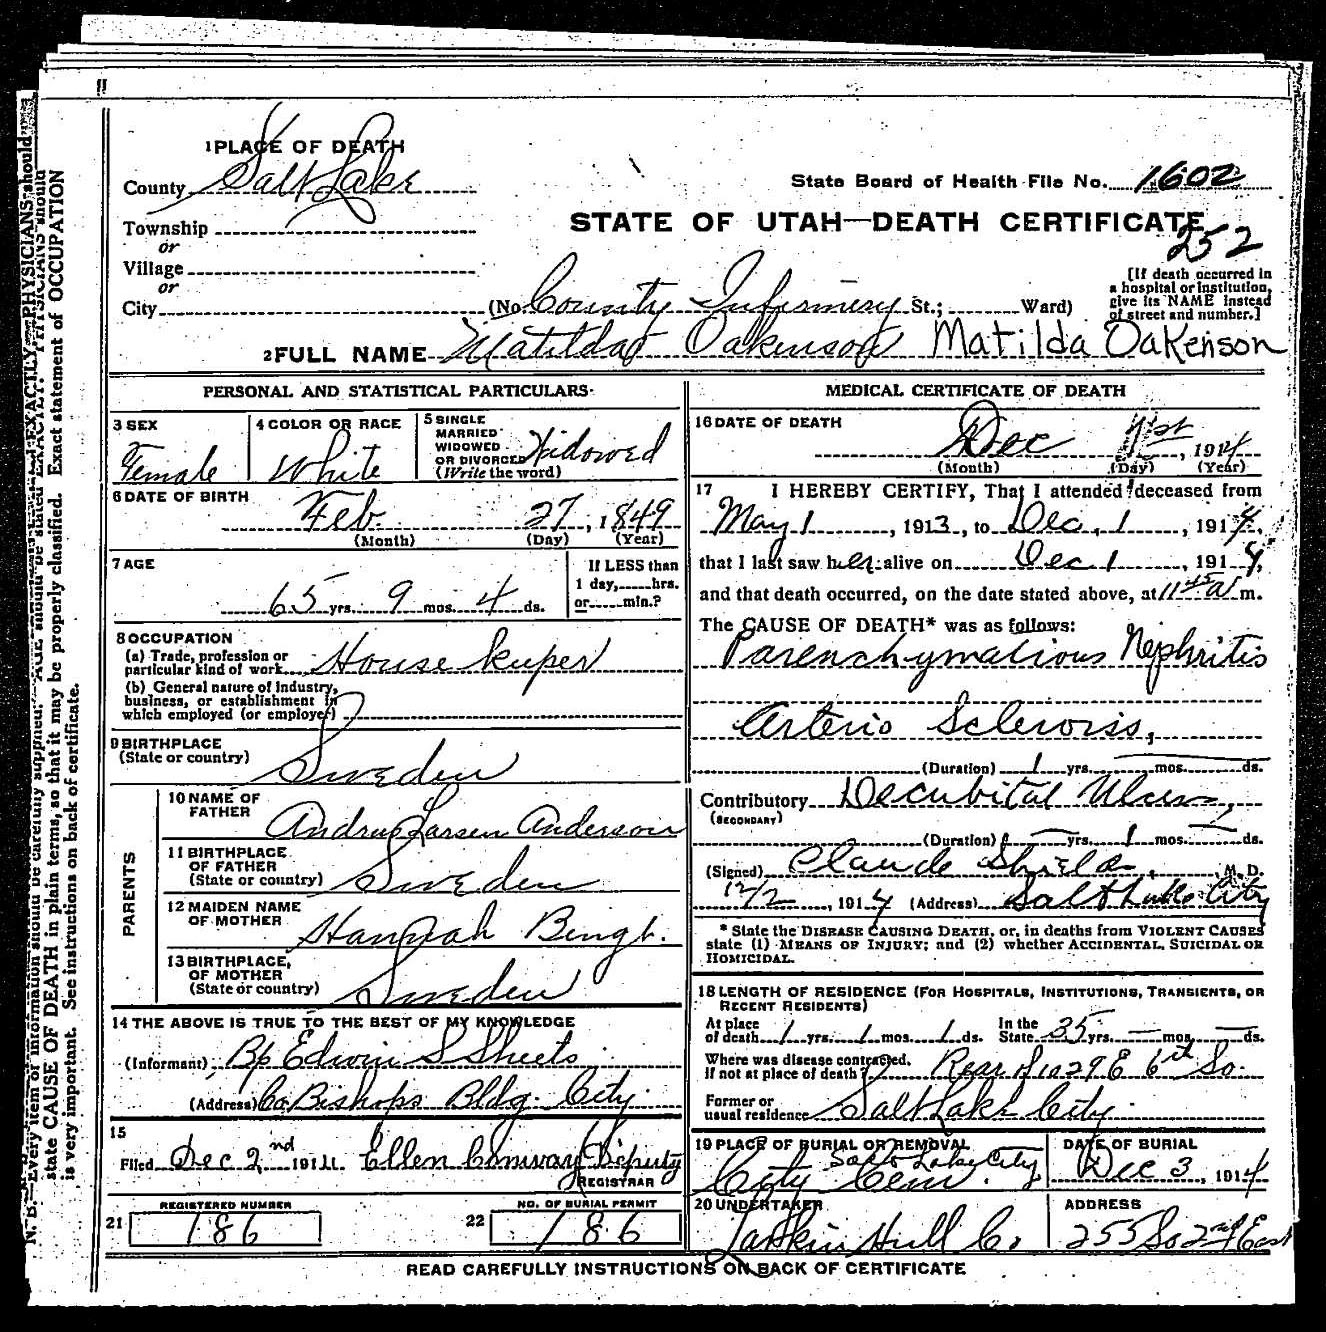 1 PLACE OF DEATH
County Salt Lake
State Board of Health File No. 1602
Township
or
STATE OF UTAH—DEATH CERTIFICATE
252
Village
or
City (No. County Infirmery St.; Ward)
[If death occurred in a hospital or institution, give its NAME instead of street and number.]
2 FULL NAME Matilda Oakenson Matilda Oakenson
PERSONAL AND STATISTICAL PARTICULARS
3 SEX Female
4 COLOR OR RACE White
5 SINGLE MARRIED WIDOWED OR DIVORCED (Write the word) Widowed
6 DATE OF BIRTH
Feb 27, 1849
(Month) (Day) (Year)
7 AGE
65 yrs. 9 mos. 4 ds.
If LESS than 1 day, hrs. or min.?
8 OCCUPATION
(a) Trade, profession or particular kind of work House keeper
(b) General nature of industry, business, or establishment in which employed (or employer)
9 BIRTHPLACE
(State or country) Sweden
PARENTS
10 NAME OF FATHER Andrus Larsen Anderson
11 BIRTHPLACE OF FATHER (State or country) Sweden
12 MAIDEN NAME OF MOTHER Hannah Bingt.
13 BIRTHPLACE OF MOTHER (State or country) Sweden
14 THE ABOVE IS TRUE TO THE BEST OF MY KNOWLEDGE
(Informant) Bp Edwin S Sheets
(Address) Co Bishops Bldg. City
15
Filed Dec 2nd 1914 Ellen Conway Deputy
REGISTRAR
21 REGISTERED NUMBER 186
22 NO. OF BURIAL PERMIT 186
MEDICAL CERTIFICATE OF DEATH
16 DATE OF DEATH
Dec 1st, 1914
(Month) (Day) (Year)
17 I HEREBY CERTIFY, That I attended deceased from
May 1, 1913, to Dec. 1, 1914,
that I last saw her alive on Dec 1, 1914,
and that death occurred, on the date stated above, at 11 45 a m.
The CAUSE OF DEATH* was as follows:
Parenchymatious Nephritis
Arterio Sclerosis,
(Duration) 1 yrs. mos. ds.
Contributory Decubital Ulcers,
(SECONDARY)
(Duration) yrs. 1 mos. ds.
(Signed) Claude Shields, M. D.
12/2, 1914 (Address) Salt Lake City
* State the DISEASE CAUSING DEATH, or, in deaths from VIOLENT CAUSES
state (1) MEANS OF INJURY; and (2) whether ACCIDENTAL, SUICIDAL OR
HOMICIDAL.
18 LENGTH OF RESIDENCE (FOR HOSPITALS, INSTITUTIONS, TRANSIENTS, OR
RECENT RESIDENTS)
At place of death 1 yrs. 1 mos. 1 ds. In the State 35 yrs. mos. ds.
Where was disease contracted, If not at place of death? Rear of 1029 E 6th So.
Former or usual residence Salt Lake City
19 PLACE OF BURIAL OR REMOVAL
Salt Lake City
City Cem.
DATE OF BURIAL
Dec 3, 1914
20 UNDERTAKER
Larkin Hull Co.
ADDRESS
255 So 2nd East
READ CAREFULLY INSTRUCTIONS ON BACK OF CERTIFICATE
N. B.—Every item of information should be carefully supplied. AGE should be stated EXACTLY. PHYSICIANS should
state CAUSE OF DEATH in plain terms, so that it may be properly classified. Exact statement of OCCUPATION
is very important. See instructions on back of certificate.